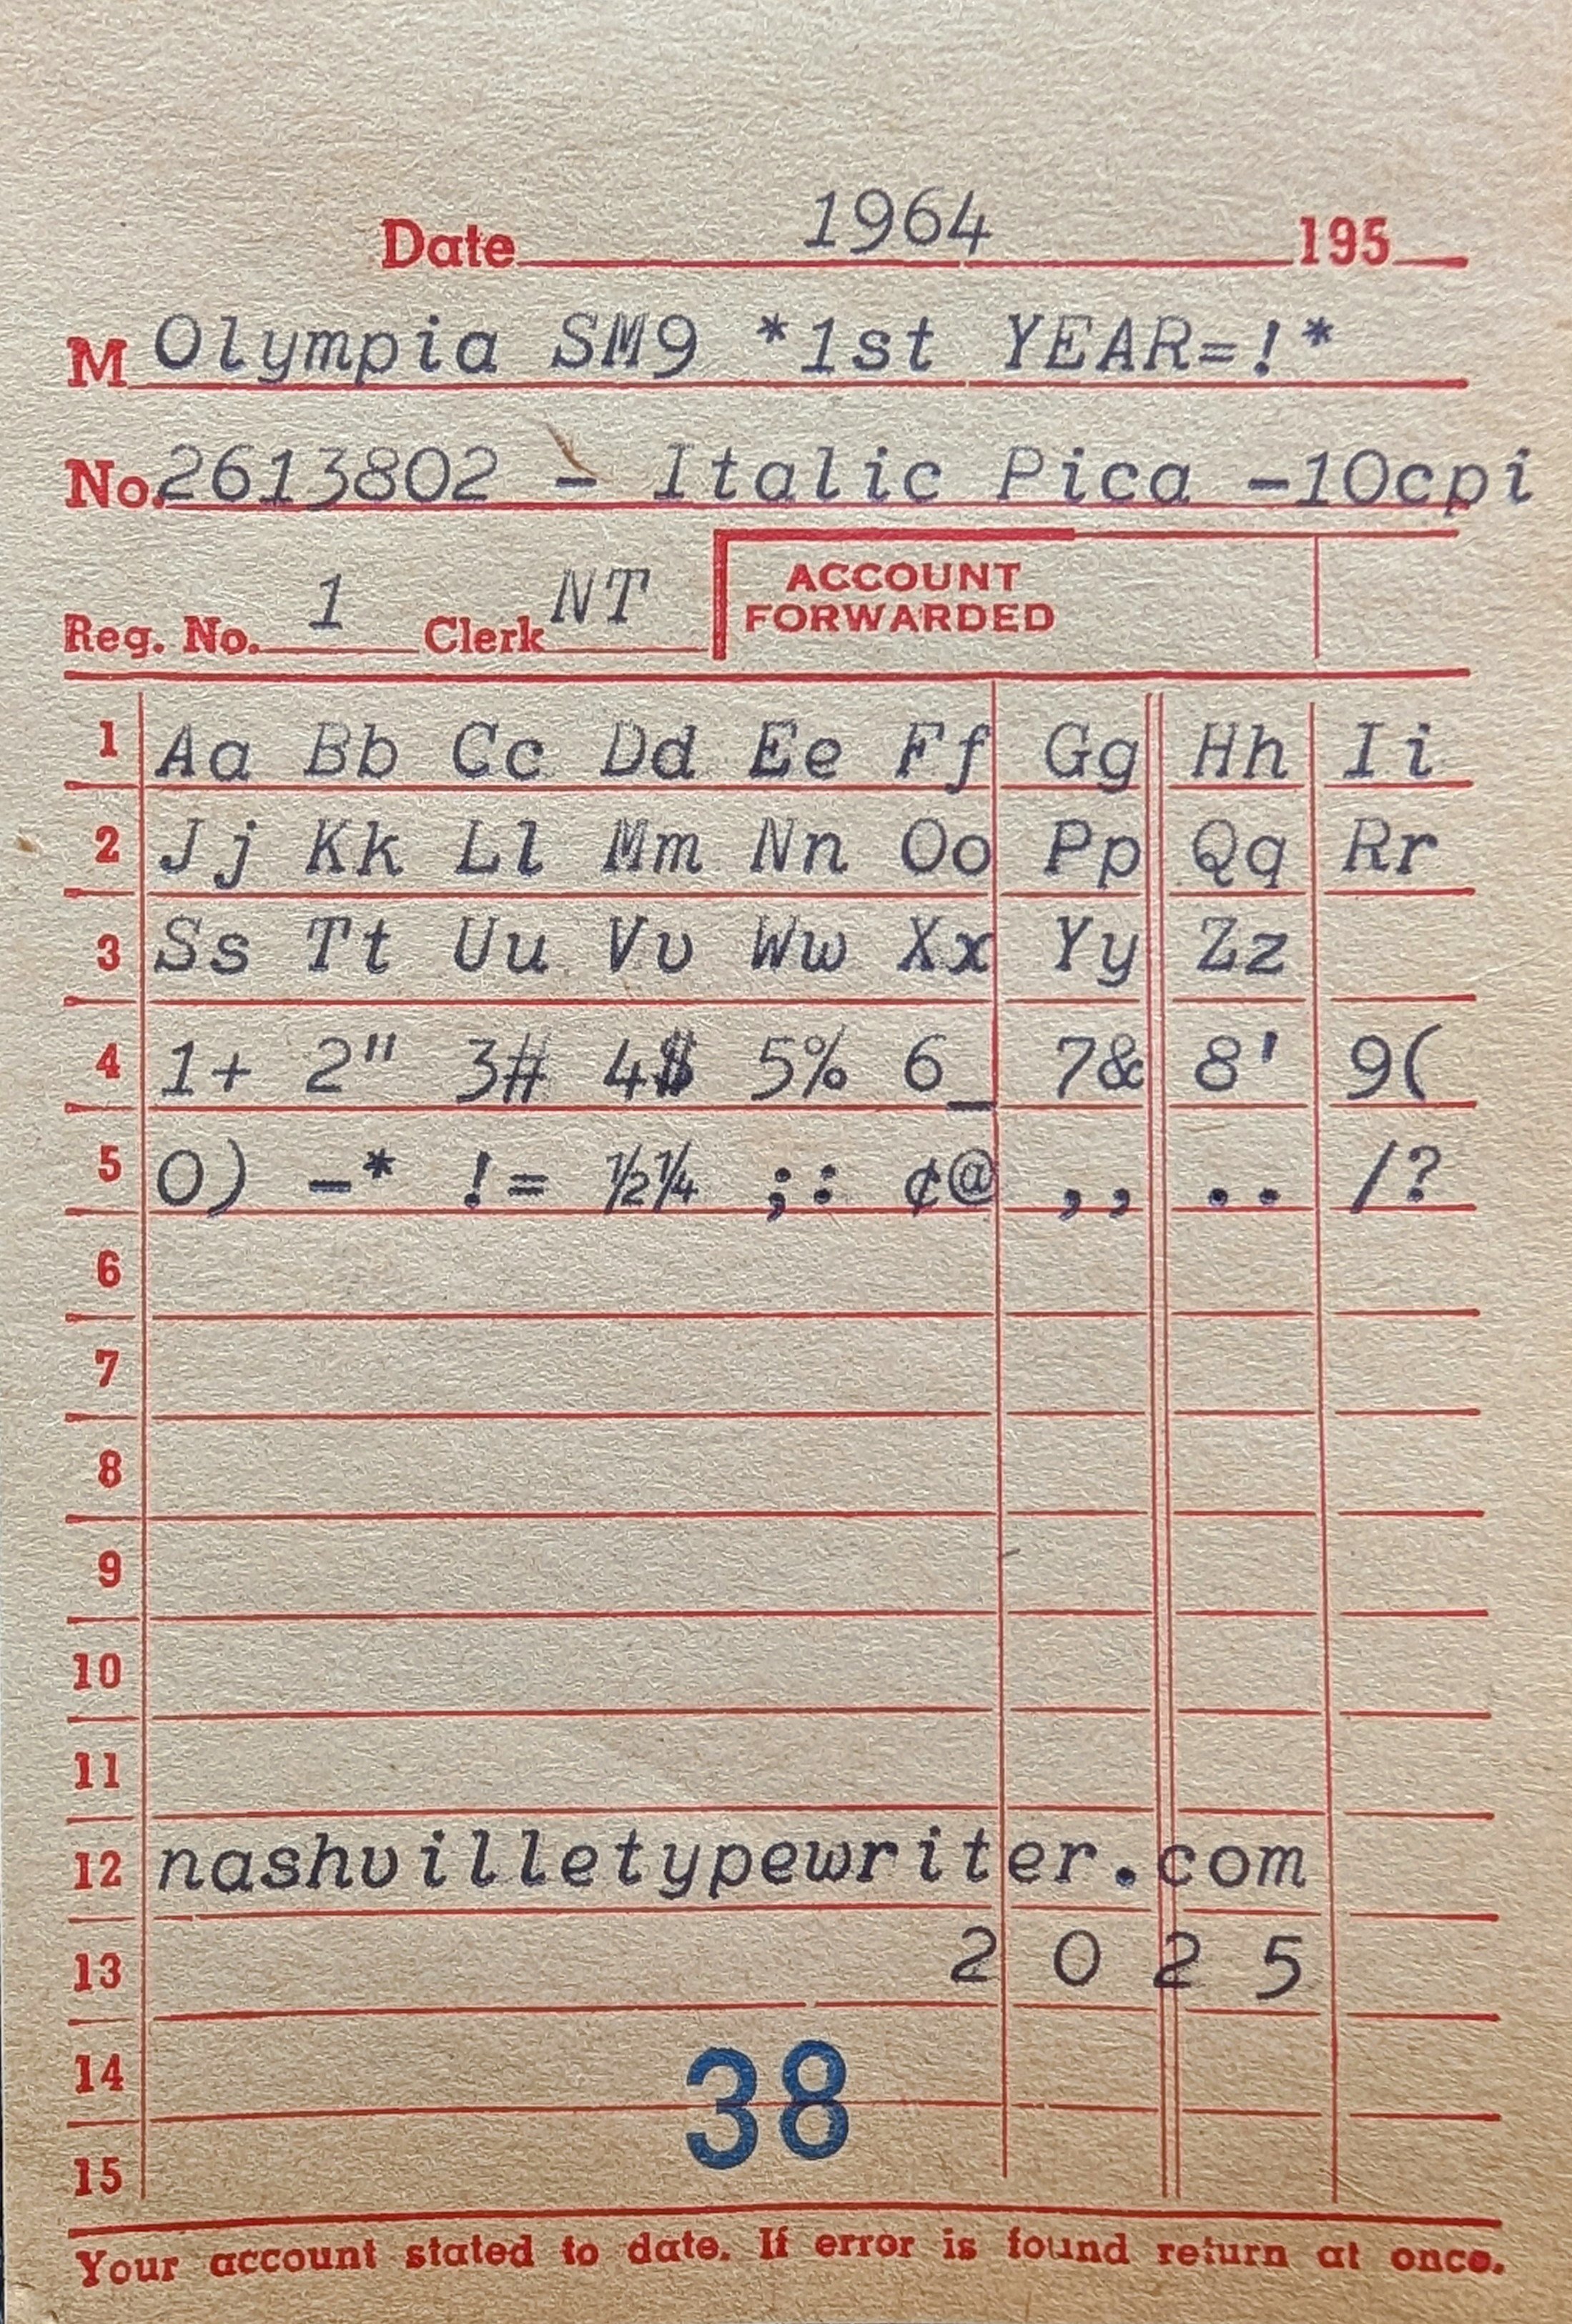 Date 1964 195
M Olympia SM9 *1st YEAR=!*
No. 2613802 - Italic Pica -10cpi
Reg. No. 1 Clerk NT ACCOUNT
FORWARDED
1 Aa Bb Cc Dd Ee Ff Gg Hh Ii
2 Jj Kk Ll Mm Nn Oo Pp Qq Rr
3 Ss Tt Uu Vv Ww Xx Yy Zz
4 1+ 2" 3# 4$ 5% 6_ 7& 8' 9(
5 0) -* != ½¼ ;: ¢@ ,, .. /?
6
7
8
9
10
11
12 nashvilletypewriter.com
13 2 0 2 5
14
38
15
Your account stated to date. If error is found return at once.